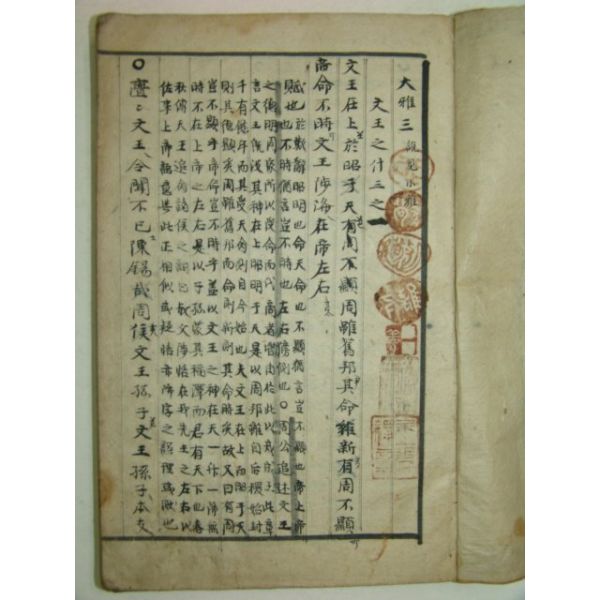 大雅三 說見小雅
文王之什三之一
文王在上於昭于天有周不顯周雖舊邦其命維新有周不顯
帝命不時文王陟降在帝左右
賦也於歎辭昭明也命天命也不顯猶言豈不顯也帝上帝
也不時猶言豈不時也左右旁側也○周公追述文王
之德明周家所以受命而代商者皆由於此以戒成王此章
言文王旣沒其神在上昭明于天是以周邦雖自后稷始封
千有餘年而其受天命則自今始也夫文王在上而昭于天
則其德顯矣周雖舊邦而命則新則其命時矣故又曰有周
豈不顯乎帝命豈不時乎蓋以文王之神在天一升一降無
時不在上帝之左右是以子孫蒙其福澤而君有天下也春
秋傳天王追命諸侯之詞曰叔父陟恪在我先王之左右以
佐事上帝語意與此正相似或疑恪亦降字之誤理或然也
○亹亹文王令聞不已陳錫哉周侯文王孫子文王孫子本支